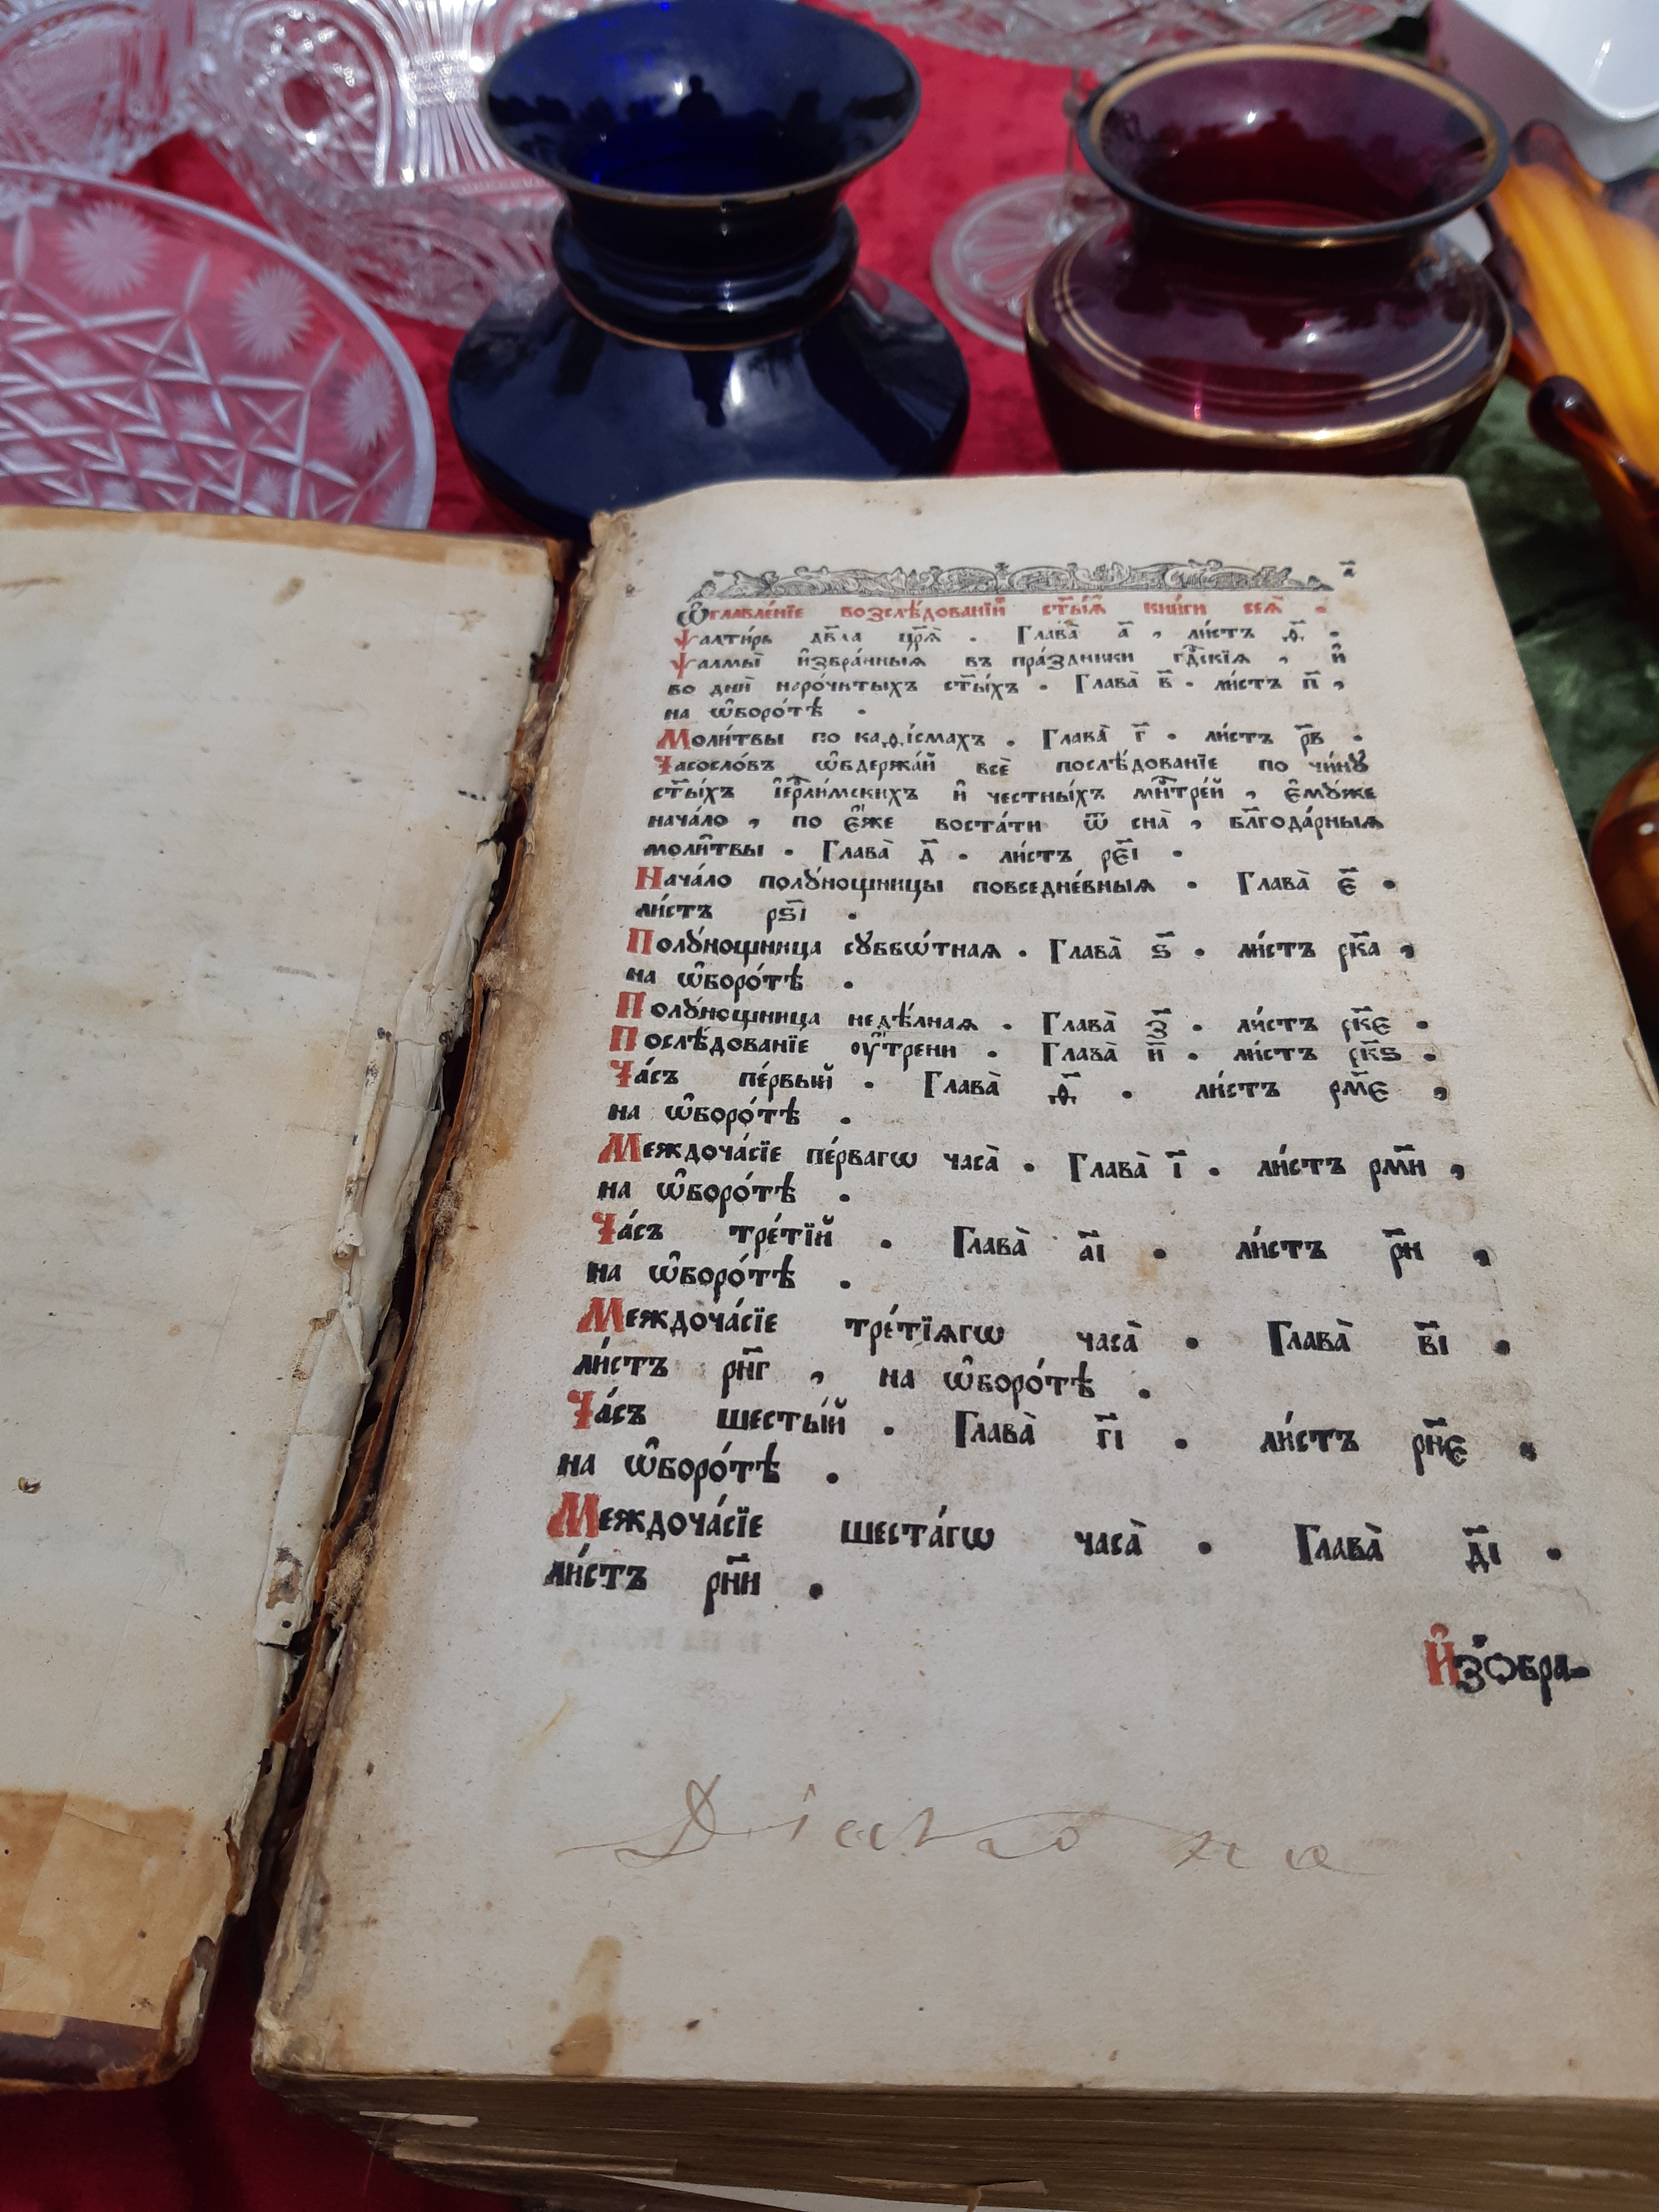 а҃
Ѡ҆главле́нїе возслѣ́дованїй ст҃ы́ѧ кни́ги сеѧ̀ .
Ѱалти́рь дв҃да цр҃ѧ̀ . Глава̀ а҃ , ли́стъ ѳ҃ .
Ѱалмы̀ и҆збра́нныѧ въ пра́здники гдⷭ҇скїѧ , и҆
во дни̑ наро́читыхъ ст҃ы́хъ . Глава̀ в҃ . ли́стъ п҃ ,
на ѡ҆боро́тѣ .
Моли́твы по каѳі́смахъ . Глава̀ г҃ . ли́стъ р҃в .
Часосло́въ ѡ҆бдержа́й всѐ послѣ́дованїе по чи́нꙋ
ст҃ы́хъ і҆ерⷭ҇ли́мскихъ и҆ честны́хъ мн҃тре́й , є҆мꙋ́же
нача́ло , по є҆́же воста́ти ѿ сна̀ , бл҃года́рныѧ
моли̑твы . Глава̀ д҃ . ли́стъ рє҃і .
Нача́ло полꙋ́нощницы повседне́вныѧ . Глава̀ є҃ .
ли́стъ рѕ҃і .
Полꙋ́нощница сꙋббѡ́тнаѧ . Глава̀ ѕ҃ . ли́стъ рк҃а ,
на ѡ҆боро́тѣ .
Полꙋ́нощница недѣ́лнаѧ . Глава̀ з҃ . ли́стъ рк҃є .
Послѣ́дованїе ᲂу҆́трени . Глава̀ и҃ . ли́стъ рк҃ѕ .
Ча́съ пе́рвый . Глава̀ ѳ҃ . ли́стъ рм҃є ,
на ѡ҆боро́тѣ .
Междоча́сїе пе́рвагѡ часа̀ . Глава̀ і҃ . ли́стъ рм҃и ,
на ѡ҆боро́тѣ .
Ча́съ тре́тїй . Глава̀ а҃і . ли́стъ р҃н ,
на ѡ҆боро́тѣ .
Междоча́сїе тре́тїѧгѡ часа̀ . Глава̀ в҃і .
ли́стъ рн҃г , на ѡ҆боро́тѣ .
Ча́съ шесты́й . Глава̀ г҃і . ли́стъ рн҃є .
на ѡ҆боро́тѣ .
Междоча́сїе шеста́гѡ часа̀ . Глава̀ д҃і .
ли́стъ рн҃и .
И҆зѻбра-